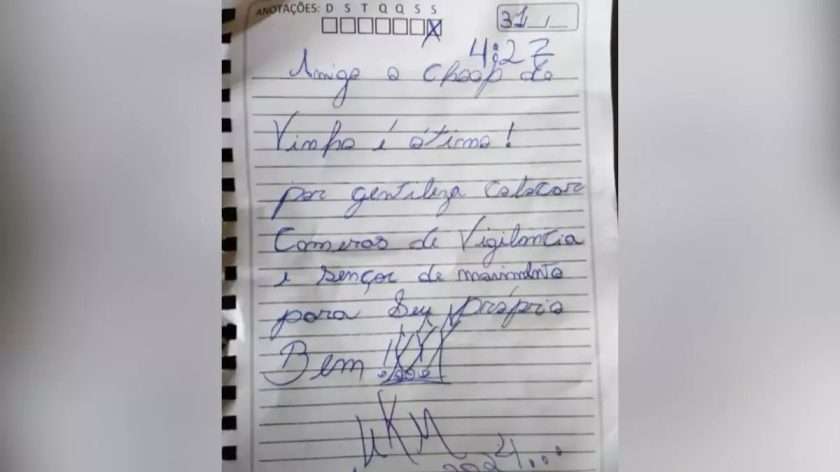 ANOTAÇÕES: D S T Q Q S S
31 / /
4:27
Amigo o chopp de
Vinho é ótimo!
por gentileza colocar
Cameras de Vigilancia
e sençor de movimento
para Seu próprio
Bem !!!!
2024...